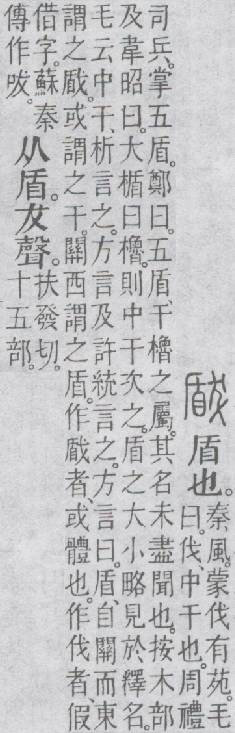 瞂
盾也。
秦風。蒙伐有苑。毛
曰。伐、中干也。周禮
司兵。掌五盾。鄭曰。五盾、干櫓之屬。其名未盡聞也。按木部
及韋昭曰。大楯曰櫓。則中干次之。盾之大小略見於釋名。
毛云中干、析言之。方言及許統言之。方言曰。盾、自關而東
謂之瞂。或謂之干。關西謂之盾。作瞂者、或體也。作伐者、假
借字。蘇秦
傳作㕹。
从盾。犮聲。
扶發切。
十五部。